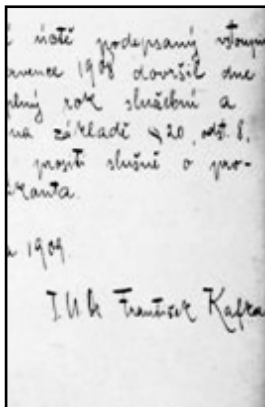 úctě podepsaný vstoup
července 1908 dovršil dne
plný rok služební a
na základě § 20, odst. 8,
prositi slušně o pro-
kanta.
1909.
JUDr František Kafka